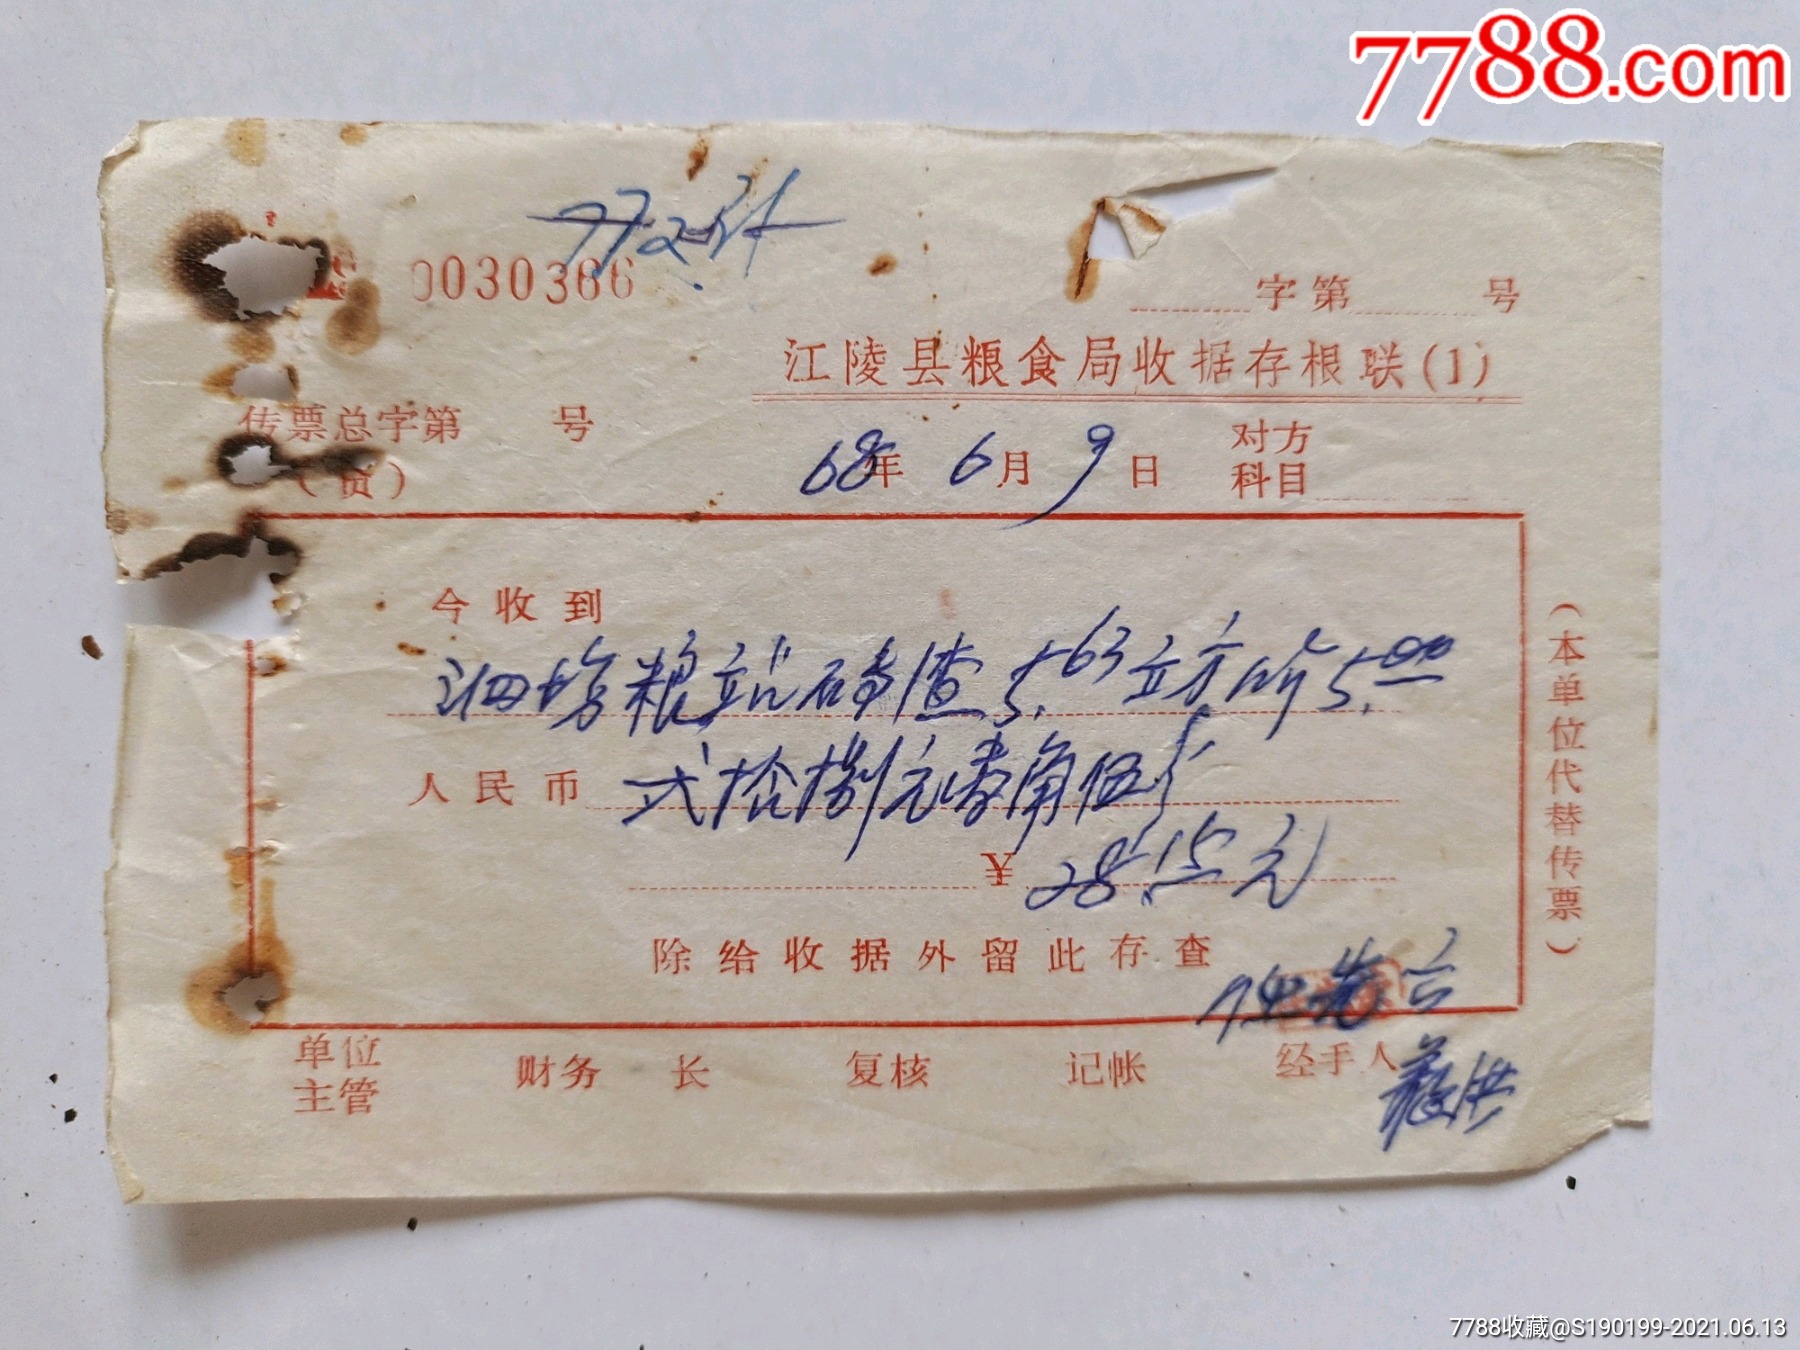 7788.com
0030366
字第 号
江陵县粮食局收据存根联(1)
传票总字第 号
(货)
68年 6月 9日
对方
科目
今收到
泗场粮站砖渣 5.63立方 价5.00
人民币 弍拾捌元壹角伍分
¥ 28.15元
除给收据外留此存查
(本单位代替传票)
单位
主管
财务 长 复核 记帐 经手人
7788收藏@S190199-2021.06.13